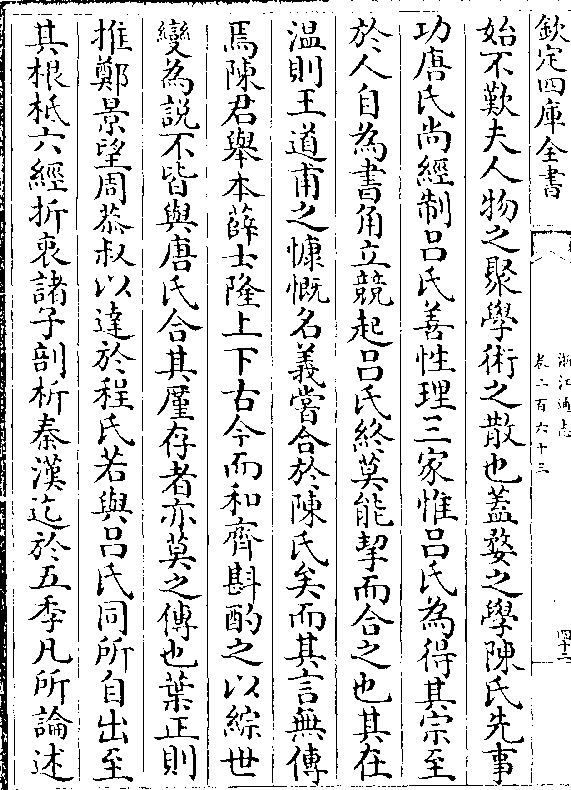 欽定四庫全書
浙江通志
卷二百六十三
四十二
始不歎夫人物之聚學術之散也蓋婺之學陳氏先事
功唐氏尚經制吕氏善性理三家惟吕氏為得其宗至
於人自為書角立競起吕氏終莫能挈而合之也其在
温則王道甫之慷慨名義嘗合於陳氏矣而其言無傳
焉陳君舉本薛士隆上下古今而和齊斟酌之以綜世
變為説不皆與唐氏合其厪存者亦莫之傳也葉正則
推鄭景望周恭叔以達於程氏若與吕氏同所自出至
其根柢六經折衷諸子剖析秦漢迄於五季凡所論述